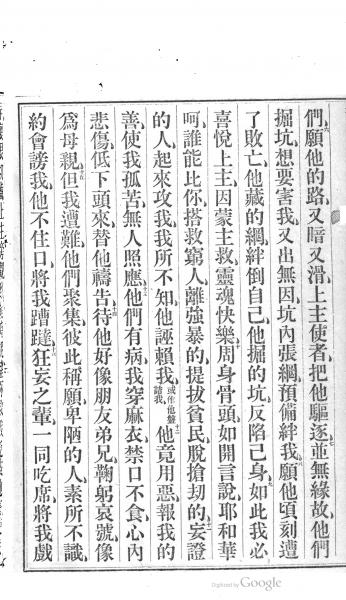 們願他的路又暗又滑、上主使者把他驅逐、並無緣故、他們
掘坑想要害我、又出無因、坑內張網預備絆我、願他頃刻遭
了敗亡、他藏的網絆倒自己、他掘的坑反陷己身、如此我必
喜悅上主、因蒙主救靈魂快樂、周身骨頭如開言說、耶和華
呵、誰能比你、搭救窮人離強暴的、提拔貧民脫搶刼的、妄證
的人起來攻我、我所不知他誣賴我、或作他盤詰我、他竟用惡報我的
善、使我孤苦無人照應、他們有病、我穿麻衣、禁口不食、心內
悲傷、低下頭來替他禱告、待他好像朋友弟兄、鞠躬哀號像
爲母親、但我遭難、他們衆集彼此稱願、卑陋的人素所不識、
約會謗我、他不住口將我蹧躂、狂妄之輩一同吃席、將我戲
Digitized by Google